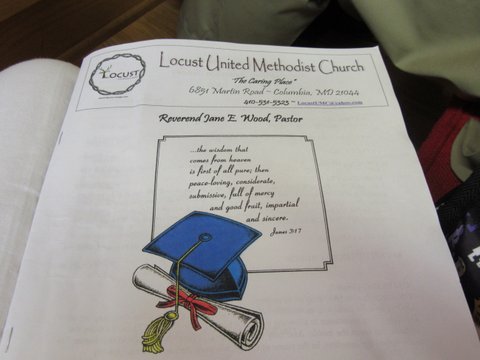 LOCUST
Locust United Methodist Church
"The Caring Place"
6851 Martin Road ~ Columbia, MD 21044
410-531-5323 ~ LocustUMC@yahoo.com
Reverend Jane E. Wood, Pastor
...the wisdom that
comes from heaven
is first of all pure; then
peace-loving, considerate,
submissive, full of mercy
and good fruit, impartial
and sincere.
James 3:17